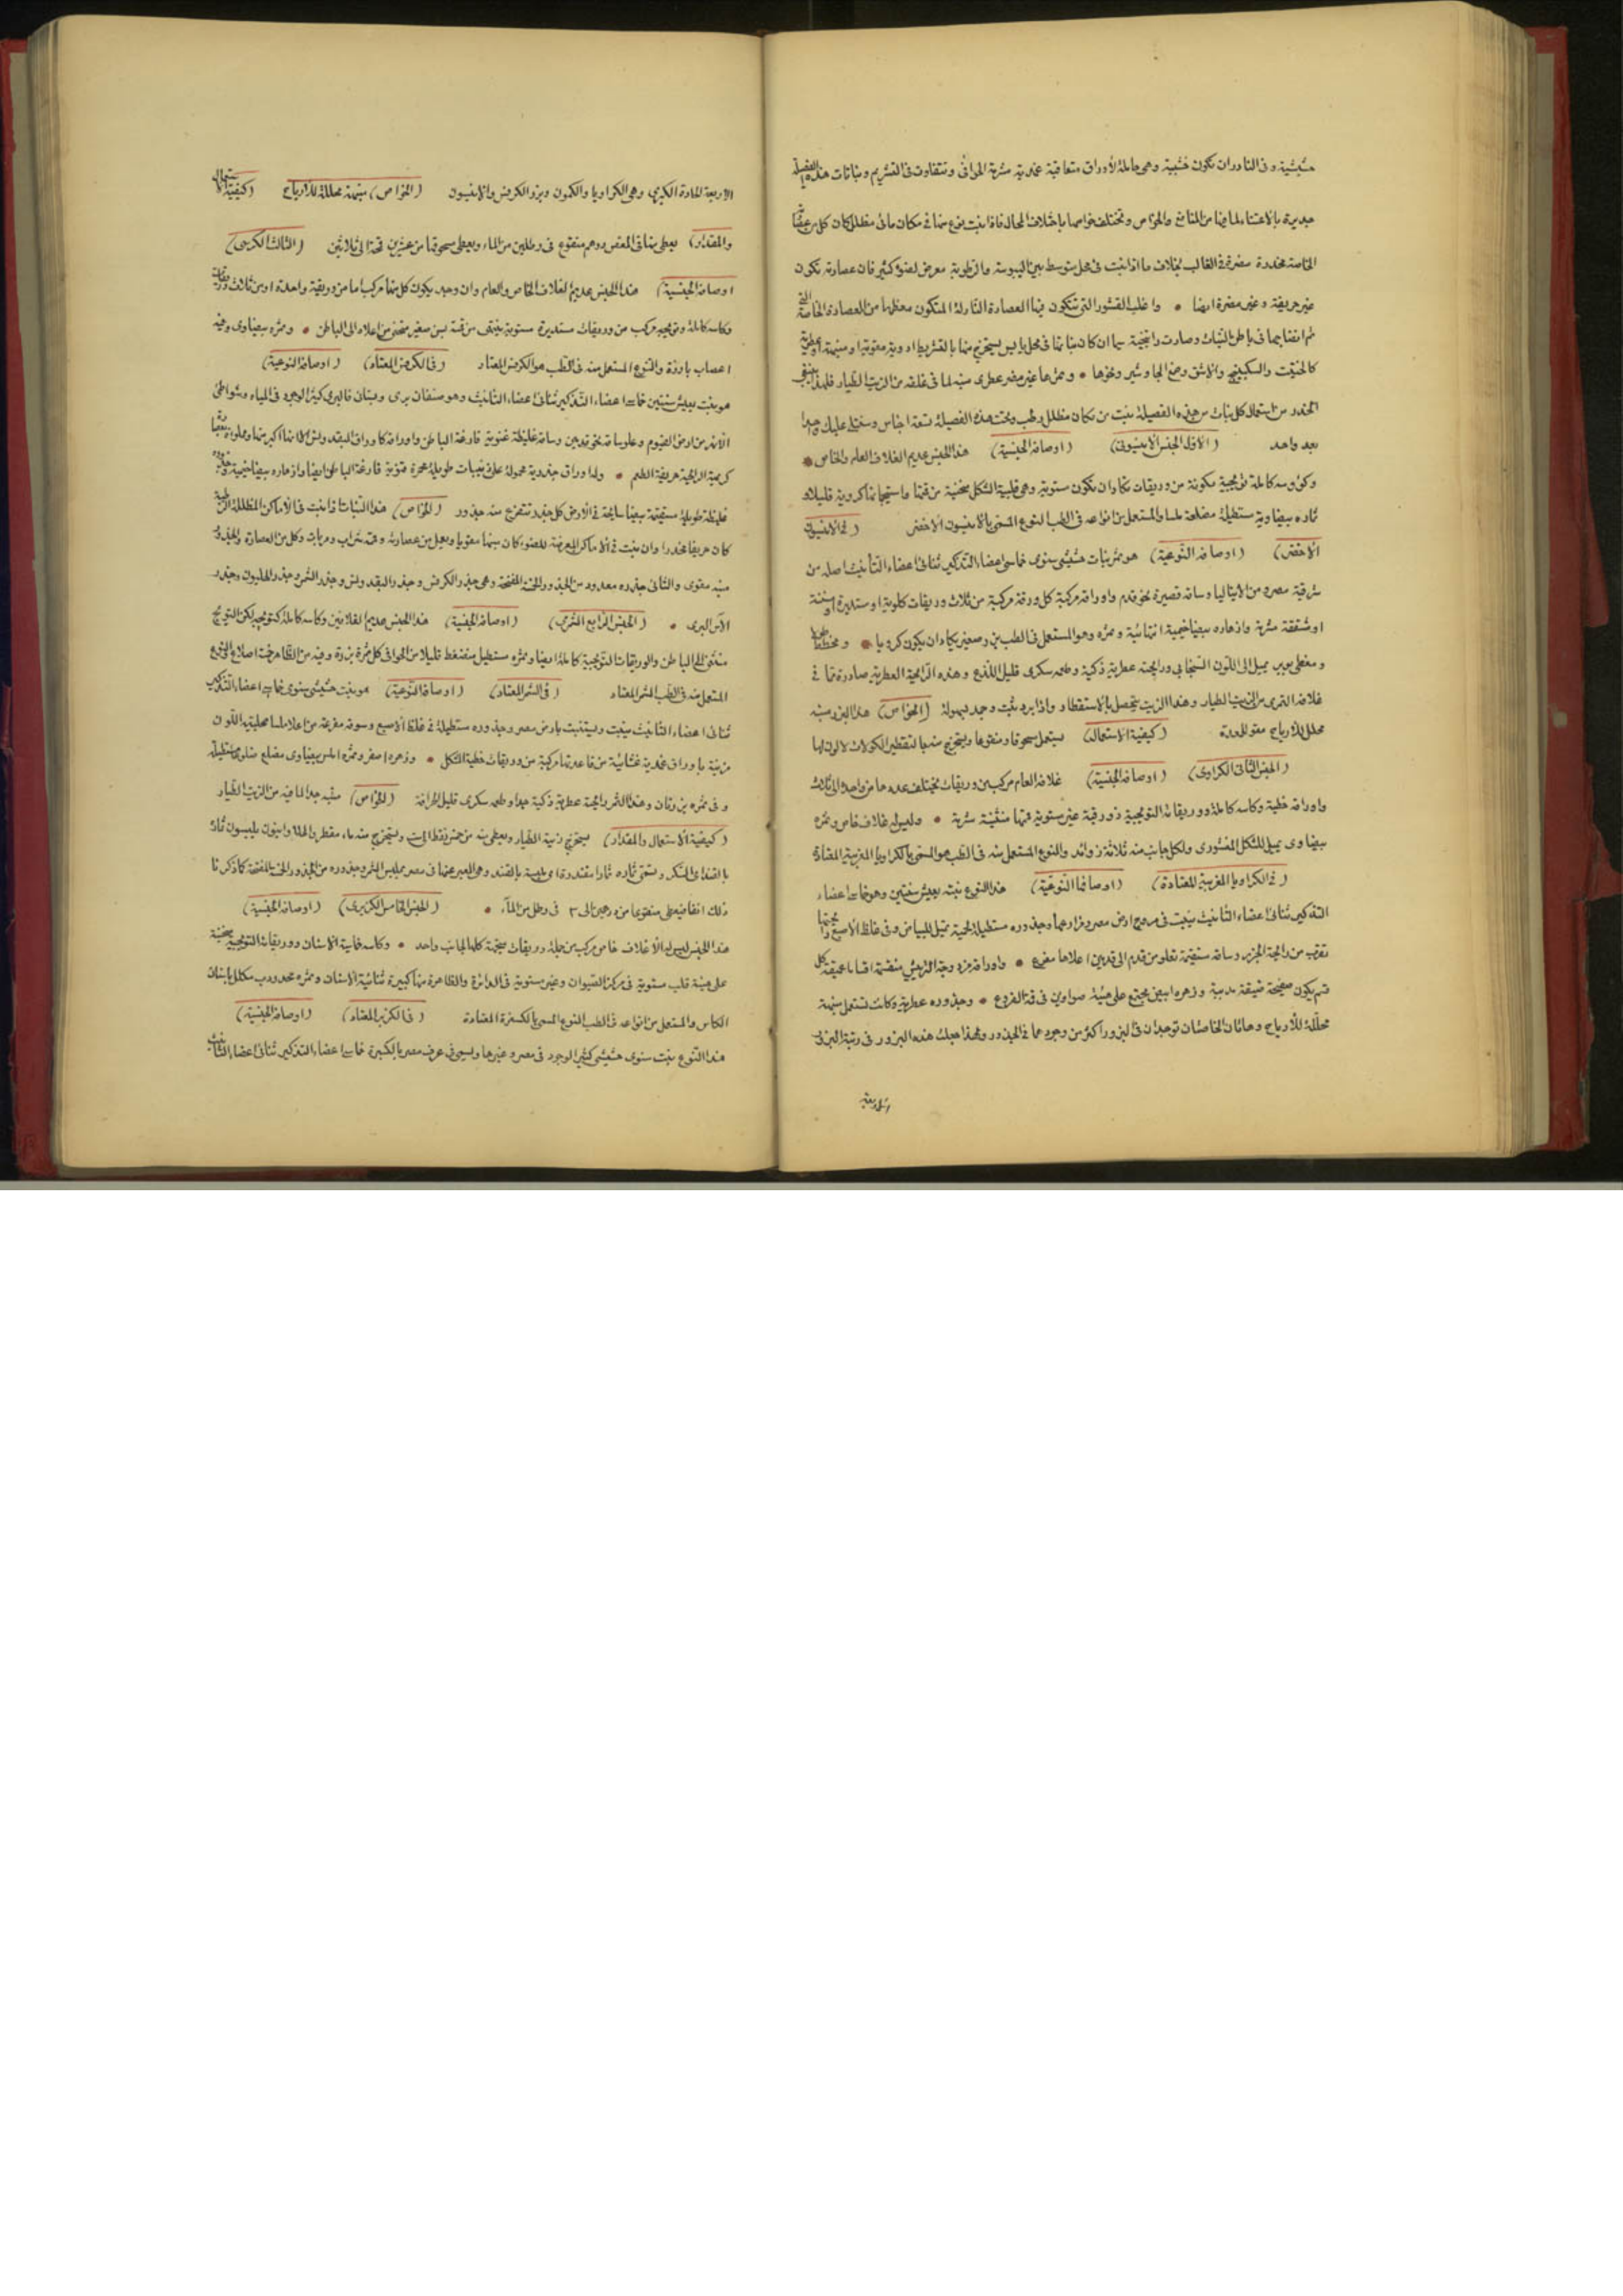 حشيشية وفى النادر ان تكون خشبية وهى حاملة لأوراق متعاقبة غمدية مشرمة الحوافى وتتفاوت فى التشريم ونباتات هذه الفصيلة
جديرة بالاعتناء لما فيها من المنافع والخواص وتختلف خواصها باختلاف المحال فاذا نبت نوع منها فى مكان مائى مظلل كان كل من عصارته
الخاصة مخدرة مضرة فى الغالب بخلاف ما اذا نبت فى محل متوسط بين اليبوسة والرطوبة معرض لضوء كثير فان عصارته تكون
غير حريفة وغير مضرة ايضا • واغلب القشور التى تتكون فيها العصارة النازلة المتكون معظمها من العصارة الخاصة التى
تم انضمامها فى باطن النبات وصارت راتنجية سيما ان كان نباتها فى محل يابس يستخرج منها بالتشريط ادوية مقوية او منبهة او عطرية
كالحلتيت والسكبينج والاشق وصمغ الجاوشير ونحوها • وثمرها غير مضر عطرى منبه لما فى غلافه من الزيت الطيار فلذا ينبغى
الحذر من استعمال كل نبات من هذه الفصيلة ينبت من مكان مظلل رطب وتحت هذه الفصيلة تسعة اجناس وستتلى عليك واحدا
بعد واحد (الاول الجنس الانيسونى) (اوصافه الجنسية) هذا الجنس عديم الغلاف العام والخاص •
وكؤوسه كاملة تويجية مكونة من وريقات تكاد ان تكون مستوية وهى قلبية الشكل منحنية من قمتها واستيجماتها كروية قليلا و
ثماره بيضاوية مستطيلة مضلعة ملسا والمستعمل من انواعه فى الطب النوع المسمى بالانيسون الاخضر (فى الانيسون
الأخضر) (اوصافه النوعية) هو ثمر نبات حشيشى سنوى خماسى اعضاء التذكير ثنائى اعضاء التأنيث اصله من
شرقية مصر ومن الايتاليا وساقه قصيرة نحو قدم واوراقه مركبة كل ورقة مركبة من ثلاث وريقات كلوية او مستديرة او مسننة
او مشققة مشرمة وازهاره بيضا خيمية انتهائية وثمره وهو المستعمل فى الطب بزر صغير يكاد ان يكون كرويا • ومخطط
ومغطى بوبر يميل الى اللون السنجابى ورائحته عطرية ذكية وطعمه سكرى قليل اللذع وهذه الرائحة العطرية صادرة مما فى
غلافه الثمرى من الزيت الطيار وهذا الزيت يتحصل بالاستقطار واذا برد يثبت وحيد بسهولة (الخواص) هذا البزر منبه
محلل للارياح مقو للمعدة (كيفية الاستعمال) يستعمل مسحوقا ومنقوعا ويستخرج منه بالتقطير الكولات لا لون لها
(الجنس الثانى الكراوى) (اوصافه الجنسية) غلافه العام مركب من وريقات يختلف عددها من واحدة الى ثلاث
واوراقه خطية وكاسه كاملة ووريقاته التويجية ذورقية غير مستوية قمتها منثنية مشرمة • وليس له غلاف خاص وثمره
بيضاوى يميل للشكل المنشورى ولكل جانب منه ثلاثة زوائد والنوع المستعمل منه فى الطب هو المسمى بالكراويا المغربية المعتادة
(فى الكراويا المغربية المعتادة) (اوصافها النوعية) هذا النوع نبته يعيش سنتين وهو خماسى اعضاء
التذكير ثنائى اعضاء التانيث ينبت فى مروج ارض مصر ومزارعها وجذوره مستطيلة لحمية تميل للبياض وفى غلظ الاصبع رائحتها
تقرب من رائحة الجزر وساقه مستقيمة تعلو من قدم الى قدمين اعلاها مفرع • واوراقه مزدوجة التريش منقسمة اقساما عميقة كل
قسم يكون صفيحة ضيقة مدببة وزهره ابيض مجتمع على هيئة صواوين فى قمة الفروع • وجذوره عطرية وكانت تستعمل منبهة
محللة للارياح وهاتان الخاصتان توجدان فى البزور اكثر من وجودهما فى الجذور ولهذا جعلت هذه البزور فى رتبة البزور
الاربعة
الاربعة الحادة الكبرى وهى الكراويا والكمون وبزر الكرفس والانيسون (الخواص) منبهة محللة للارياح (كيفية الاستعمال
والمقدار) يعطى منها فى المغص درهم منقوع فى رطلين من الماء ويعطى مسحوقها من عشرين قمحة الى ثلاثين (الثالث الكرفسى)
(اوصافه الجنسية) هذا الجنس عديم الغلاف الخاص والعام وان وجد يكون كل منها مركبا اما من وريقة واحدة او من ثلاث وريقات
وكاسه كاملة وتويجه مركب من وريقات مستديرة مستوية ينتهى من قمته بسن صغير منحن من اعلاه الى الباطن • وثمره بيضاوى وفيه
اعصاب بارزة والنوع المستعمل منه فى الطب هو الكرفس المعتاد (فى الكرفس المعتاد) (اوصافه النوعية)
هو نبت يعيش سنتين خماسى اعضاء التذكير ثنائى اعضاء التانيث وهو صنفان برى وبستانى فالبرى كثير الوجود فى المياه وشواطئ
الانهر من ارض الفيوم وعلو ساقه نحو قدمين وساقه غليظة قنوية فارغة الباطن واوراقه كاوراق البقدونس الا انها اكبر منها ومملوءة
كريهة الرائحة حريفة الطعم • ولها اوراق جذرية محمولة على ذنيبات طويلة محمرة قنوية فارغة الباطن ايضا وازهاره بيضا خيمية وجذوره
غليظة طويلة مستقيمة بيضا سابحة فى الارض كل جذر تتفرع منه جذور (الخواص) هذا النبات اذا نبت فى الاماكن المظللة الرطبة
كان حريفا مخدرا وان نبت فى الاماكن المعرضة للضوء كان منبها مقويا ويعمل من عصارته وقمته شراب ومربات وكل من العصارة والجذور
منبه مقوى والثانى جذره معدود من الجذور الخمسة المفتحة وهى جذر الكرفس وجذر البقدونس وجذر الشمر وجذر الهليون وجذر
الآس البرى • (الجنس الرابع الشمرى) (اوصافه الجنسية) هذا الجنس عديم الغلافين وكاسه كاملة كتويجه لكن التويج
منثنى الى الباطن والوريقات التويجية كاملة ايضا وثمره مستطيل منضغط قليلا من الحوافى كل ثمرة بزرة وفيه من الظاهر خمسة اضلاع والنوع
المستعمل منه فى الطب الشمر المعتاد (فى الشمر المعتاد) (اوصافه النوعية) هو نبت حشيشى سنوى خماسى اعضاء التذكير
ثنائى اعضاء التانيث ينبت ويستنبت بارض مصر وجذوره مستطيلة فى غلظ الاصبع وسوقه مفرعة من اعلا ملسا محلبية اللون
مزينة باوراق غمدية غشائية من قاعدتها مركبة من وريقات خطية الشكل • وزهره اصفر وثمره املس بيضاوى مضلع مستطيل
وفى ثمره بزرتان وهذا الثمر رائحته عطرية ذكية جدا وطعمه سكرى قليل الحرافة (الخواص) منبه جدا لما فيه من الزيت الطيار
(كيفية الاستعمال والمقدار) يستخرج زيته الطيار ويعطى منه من خمس نقط الى ست ويستخرج منه ماء مقطر واهل لابنون يلبسون ثماره
بالقند اى السكر وتسمى ثماره ثمارا مقندة اى ملبسة بالقند وهى المعبر عنها فى مصر بملبس الشمر وجذوره من الجذور الخمسة المفتحة كما ذكرنا
ذلك انفا فيعطى منقوعا من درهمين الى ٣ فى رطل من المآء • (الجنس الخامس الكزبرى) (اوصافه الجنسية)
هذا الجنس ليس له الا غلاف خاص مركب من جملة وريقات متجهة كلها لجانب واحد • وكاسه خماسية الاسنان ووريقاته التويجية منحنية
على هيئة قلب مستوية فى مركز الصيوان وغير مستوية فى الدائرة والظاهرة منها كبيرة ثنائية الاسنان وثمره محدودب مكلل باسنان
الكاس والمستعمل من انواعه فى الطب النوع المسمى بالكسفرة المعتادة (فى الكزبر المعتاد) (اوصافه الجنسية)
هذا النوع نبت سنوى حشيشى كثير الوجود فى مصر وغيرها ويسمى فى عرف مصر بالكسبرة خماسى اعضاء التذكير ثنائى اعضاء التأنيث